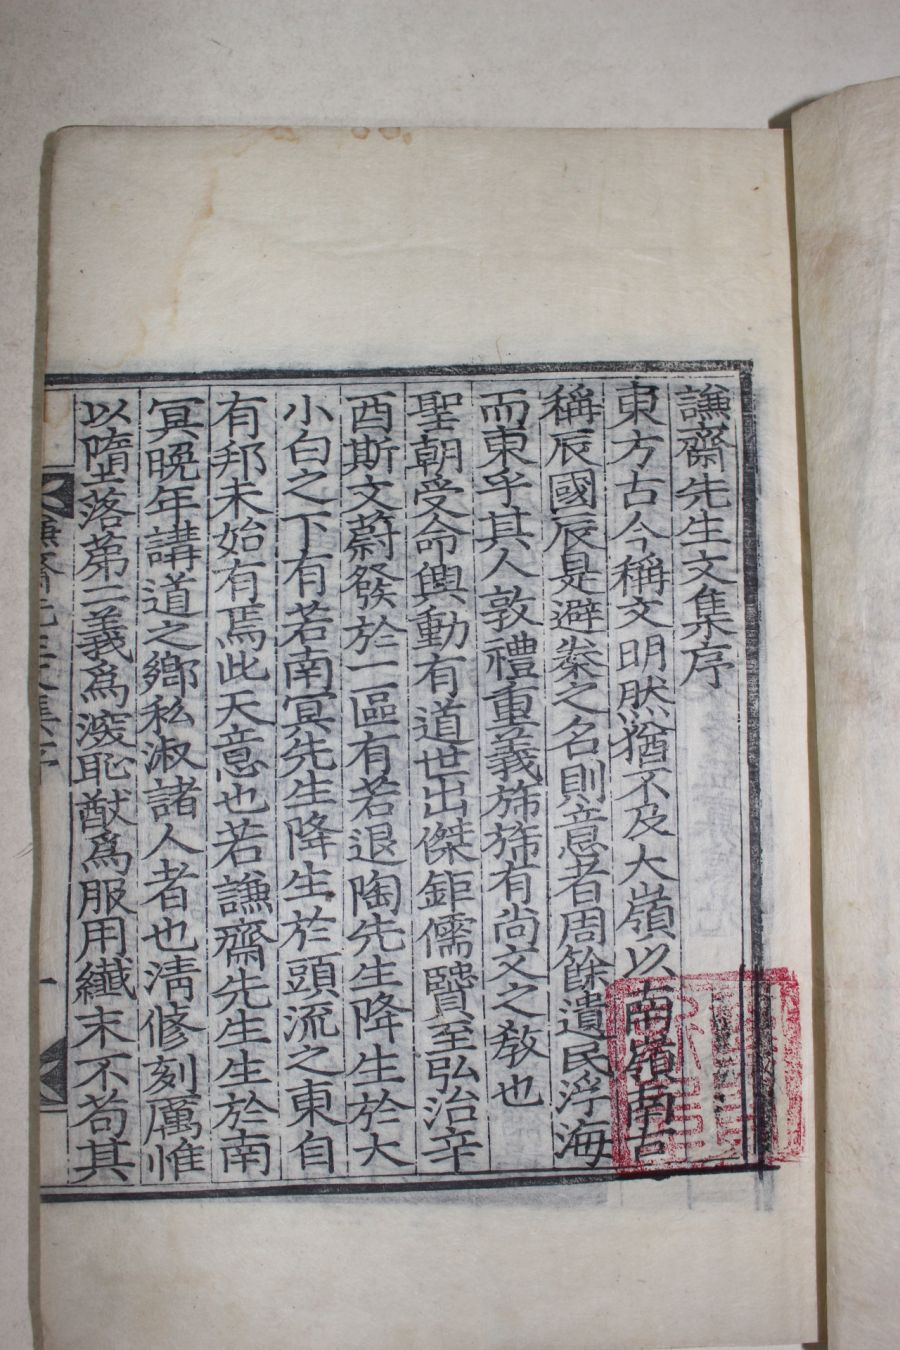 謙齋先生文集序
東方古今稱文明然猶不及大嶺以南嶺南古
稱辰國辰是避秦之名則意者周餘遺民浮海
而東乎其人敦禮重義斾斾有尚文之敎也
聖朝受命興動有道世出傑鉅儒賢至弘治辛
酉斯文蔚發於一區有若退陶先生降生於大
小白之下有若南冥先生降生於頭流之東自
有邦未始有焉此天意也若謙齋先生生於南
冥晩年講道之鄉私淑諸人者也淸修刻厲惟
以墮落第二義爲深恥猷爲服用纖末不苟其
謙齋先生文集序
一